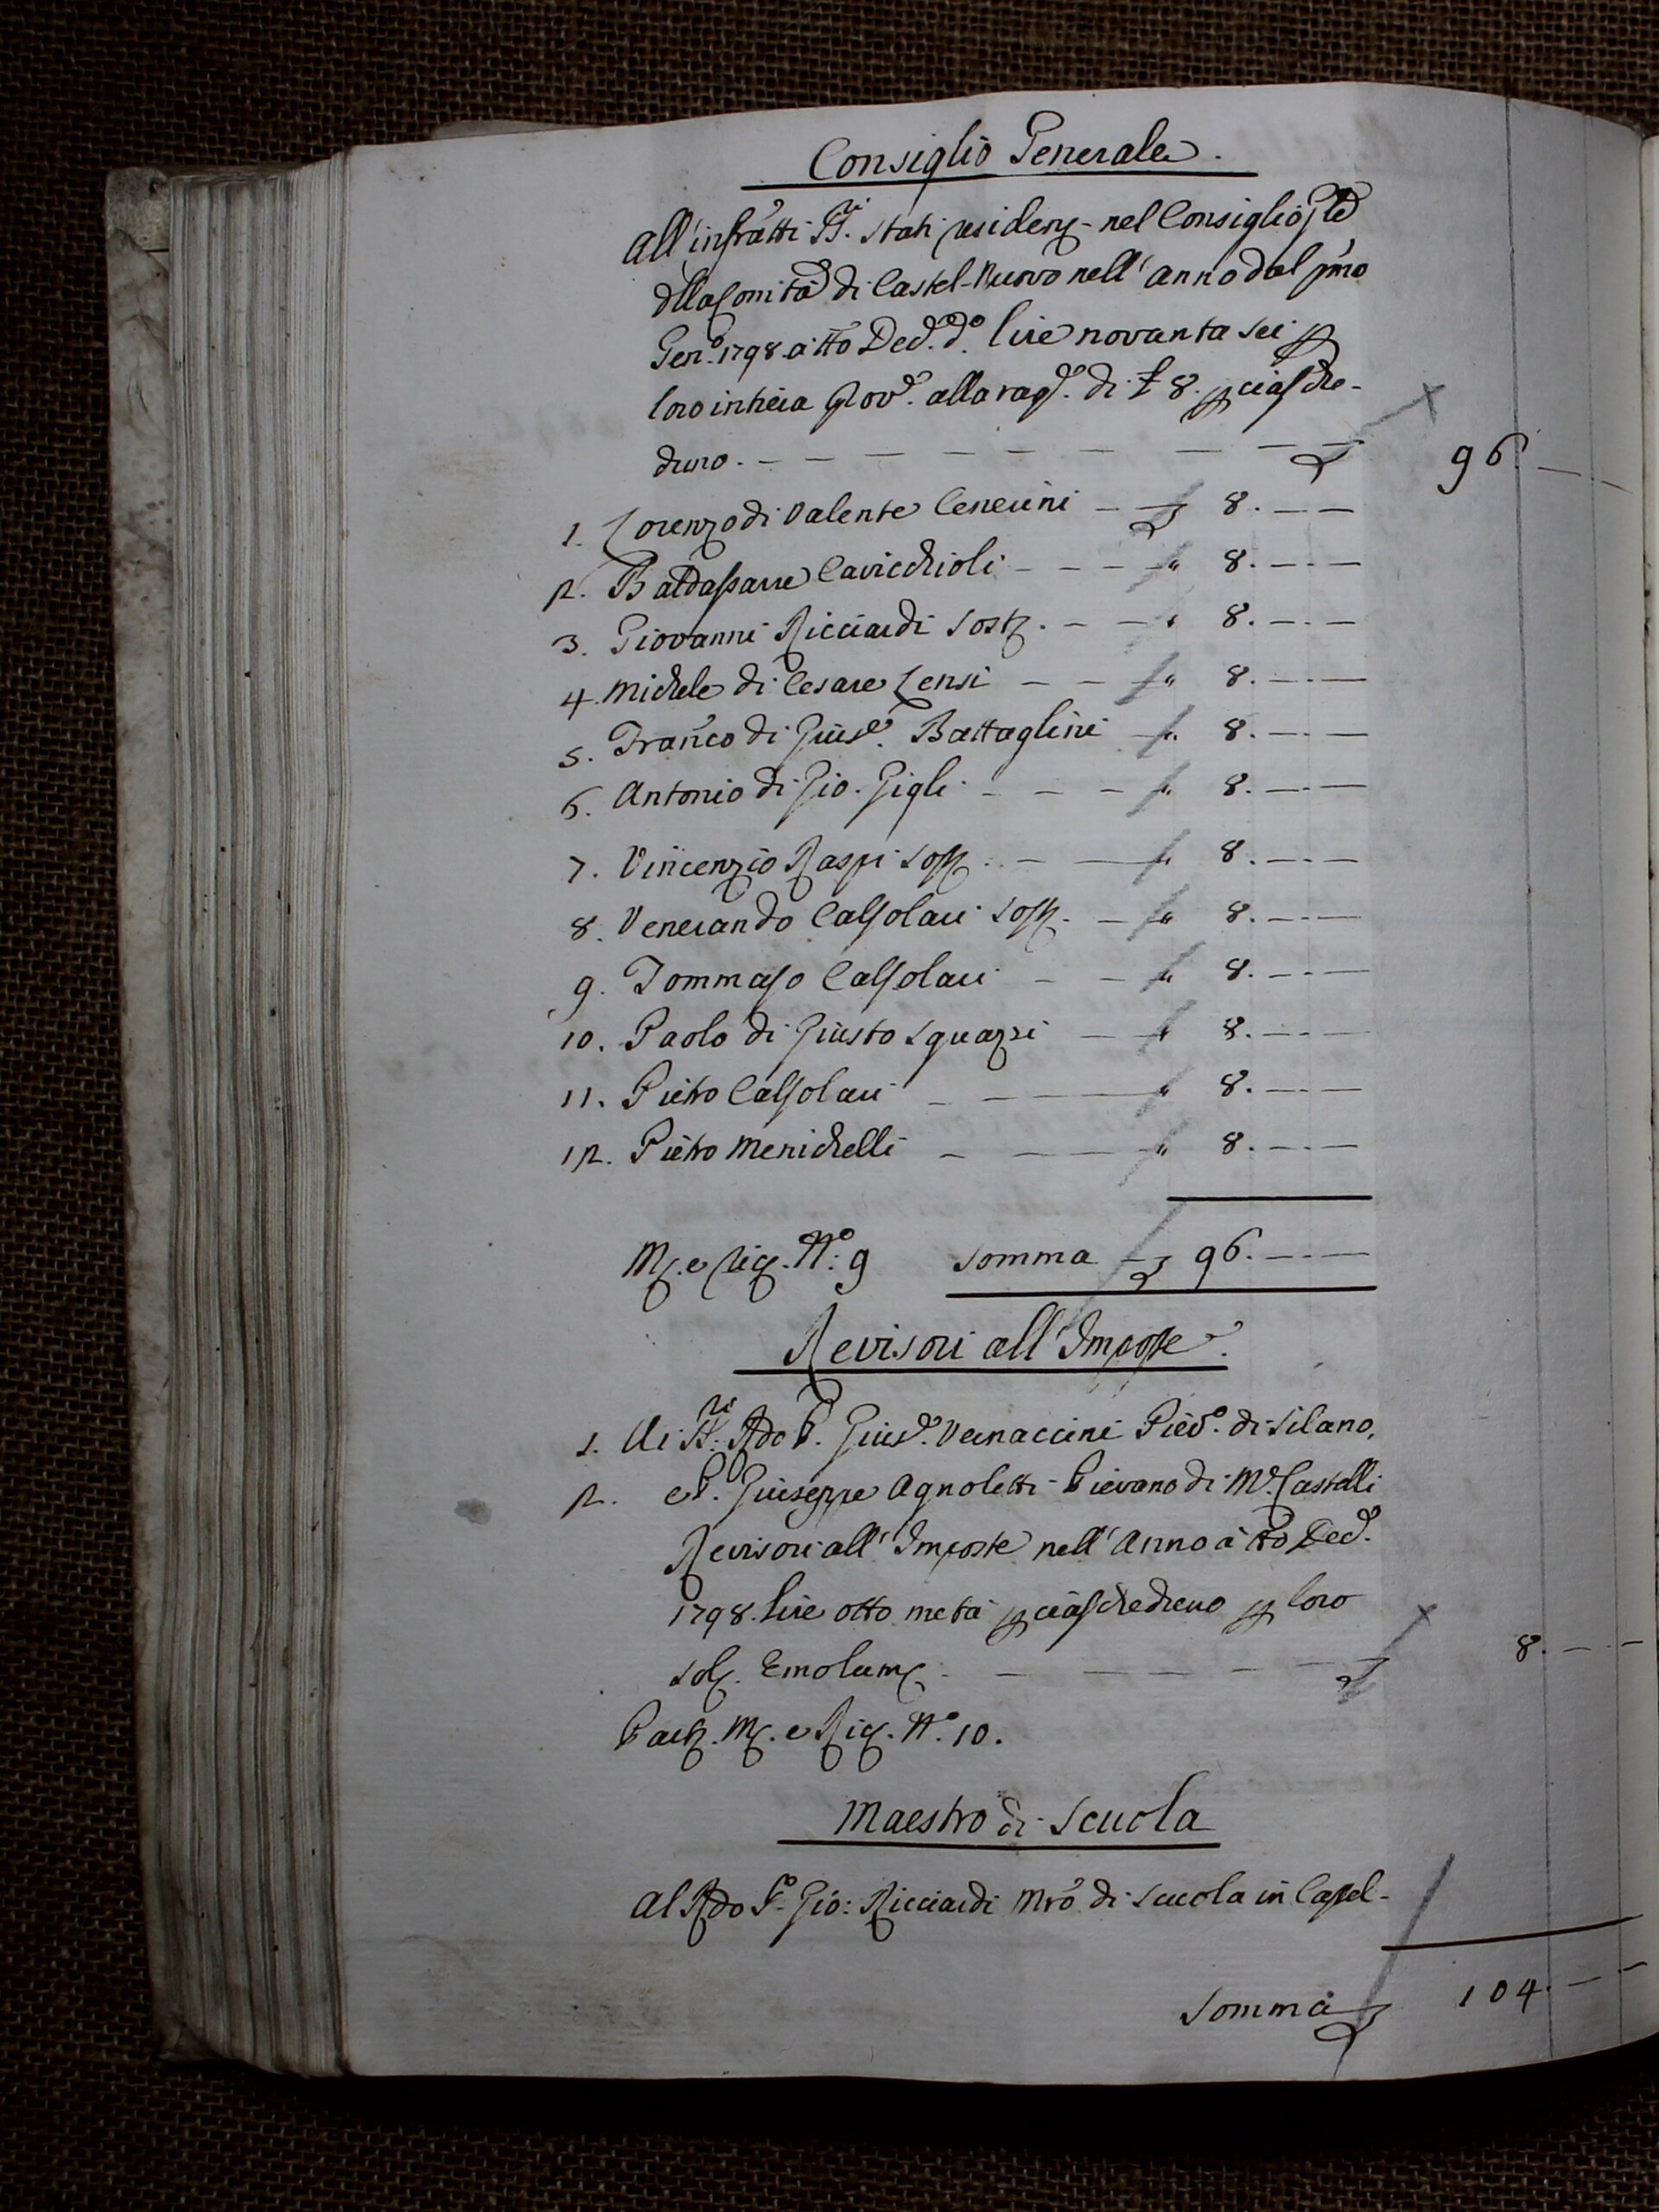 Consiglio Generale.
All'infratti SS.ri Stati residenz. nel Consiglio Gle
dlla Comità di Castel-Nuovo nell'anno dal pmo
Gen.o 1798. a tto Dec.e d.o lire novanta sei p
loro intiera Prov.e alla rag.e di £ 8. p ciasche-
duno. — — — — — — — — — £ 96. —
1. Lorenzo di Valente Cenerini — £ 8. —.—
2. Baldassarre Cavicchioli — — — " 8. —.—
3. Giovanni Ricciardi Sost. — — " 8. —.—
4. Michele di Cesare Lensi — — " 8. —.—
5. Franco di Gius.e Battaglini — " 8. —.—
6. Antonio di Gio. Gigli — — — " 8. —.—
7. Vincenzio Raspi Sost. — — " 8. —.—
8. Venerando Calsolari Sost. — " 8. —.—
9. Tommaso Calsolari — — " 8. —.—
10. Paolo di Giusto Squazzi — " 8. —.—
11. Pietro Calsolari — — — " 8. —.—
12. Pietro Menichelli — — — " 8. —.—
M. e Ric. N.o 9 Somma — £ 96. —.—
Revisori all'Imposte.
1. Ai SS.ri Rdo P. Gius.e Vernaccini Piev.o di Silano,
2. e P. Giuseppe Agnoletti Pievano di M.e Castelli
Revisori all'Imposte nell'Anno a tto Dec.e
1798. lire otto metà p ciascheduno p loro
sol. Emolum. — — — — — £ 8. —.—
Part. M. e Ric. N.o 10.
Maestro di Scuola
Al Rdo P. Gio: Ricciardi Mro di Scuola in Castel-
Somma £ 104. —.—